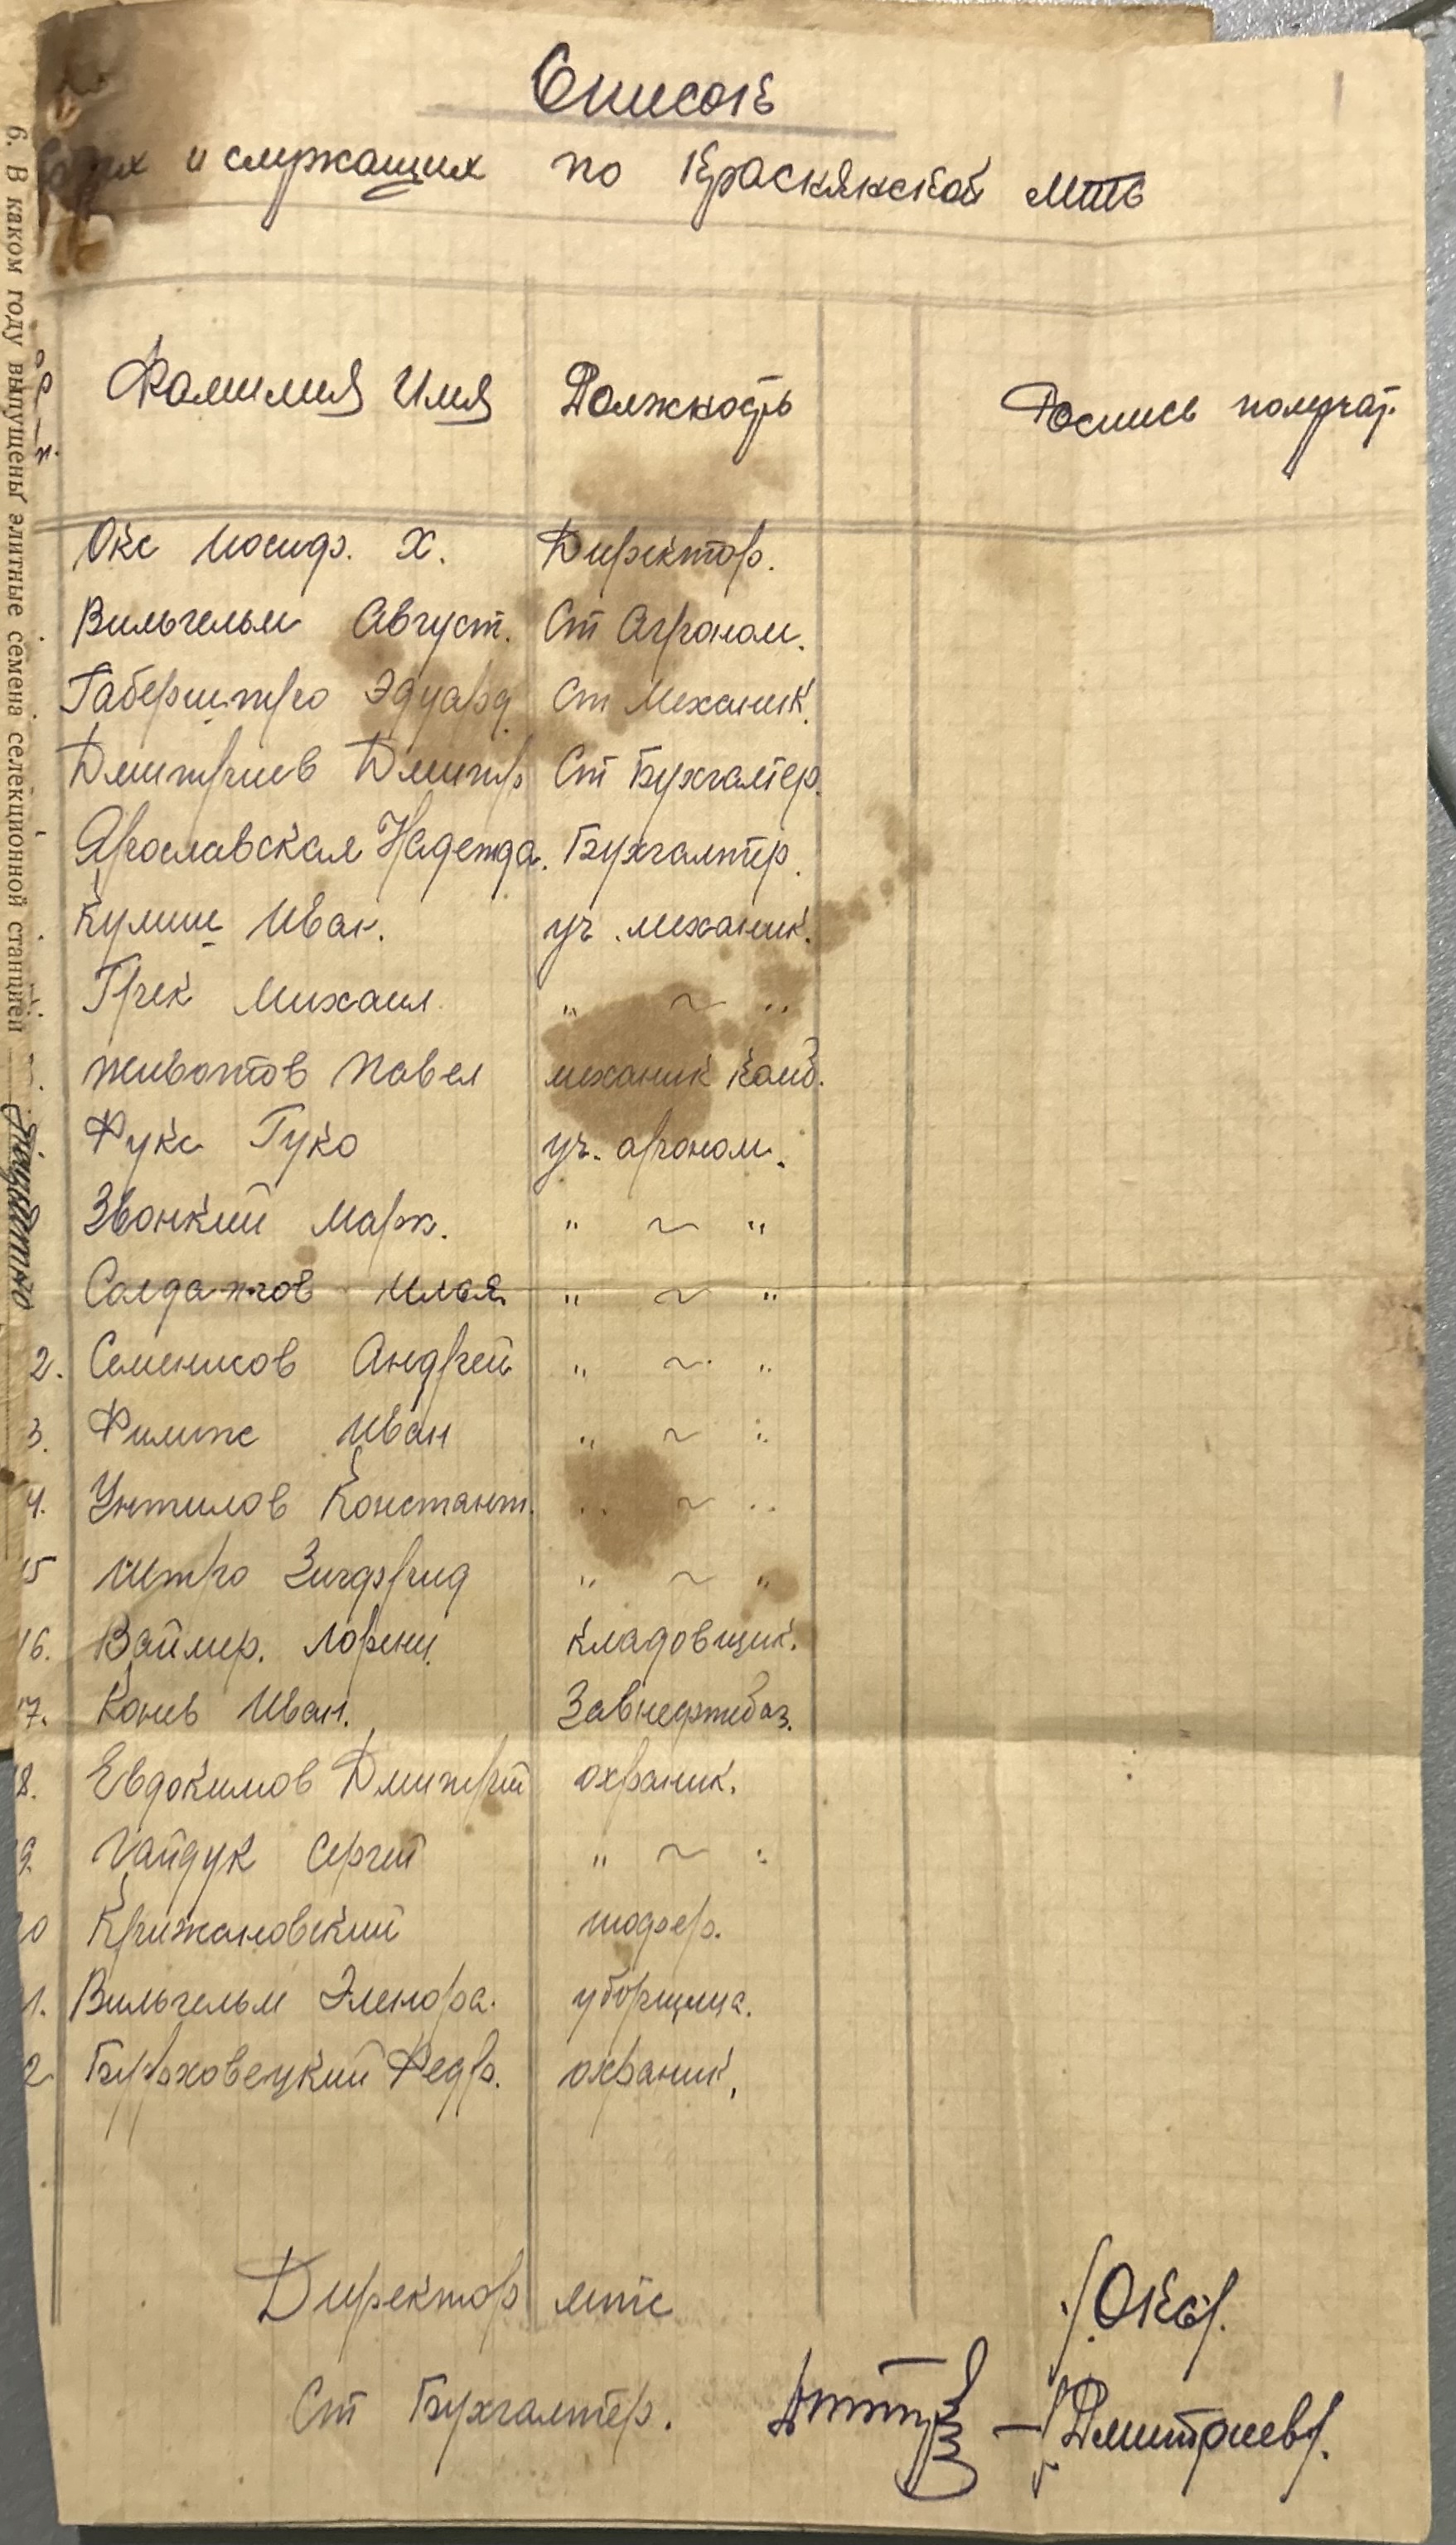 Список
их и служащих по Краснянской МТС
Фамилия Имя Должность Роспись получат.
Окс Иосиф. Х. Директор.
Вильгельм Август. Ст Агроном.
Габерштро Эдуард Ст Механик.
Дмитриев Дмитр Ст Бухгалтер.
Ярославская Надежда. Бухгалтер.
Кулиш Иван. уч. механик.
Грек Михаил " ~ "
Животов Павел механик комб.
Фукс Гуко уч. агроном.
Звонкий Марк. " ~ "
Солдатов Илья " ~ "
2. Семенисов Андрей " ~ "
3. Филипс Иван " ~ "
4. Унтилов Константин. " ~ "
15 Штро Зигфрид " ~ "
16. Ваймер. Лоренц. кладовщик.
17. Конев Иван. Завнефтебаз.
8. Евдокимов Дмитрий охраник.
9. Гайдук Сергей " ~ "
20 Крижановский шофер.
1. Вильгельм Эленора. уборщица.
2 Бурховецкий Федр. охраник.
Директор мтс /Окс/.
Ст Бухгалтер. — /Дмитриев/.
6. В каком году выпущены элитные семена селекционной станцией